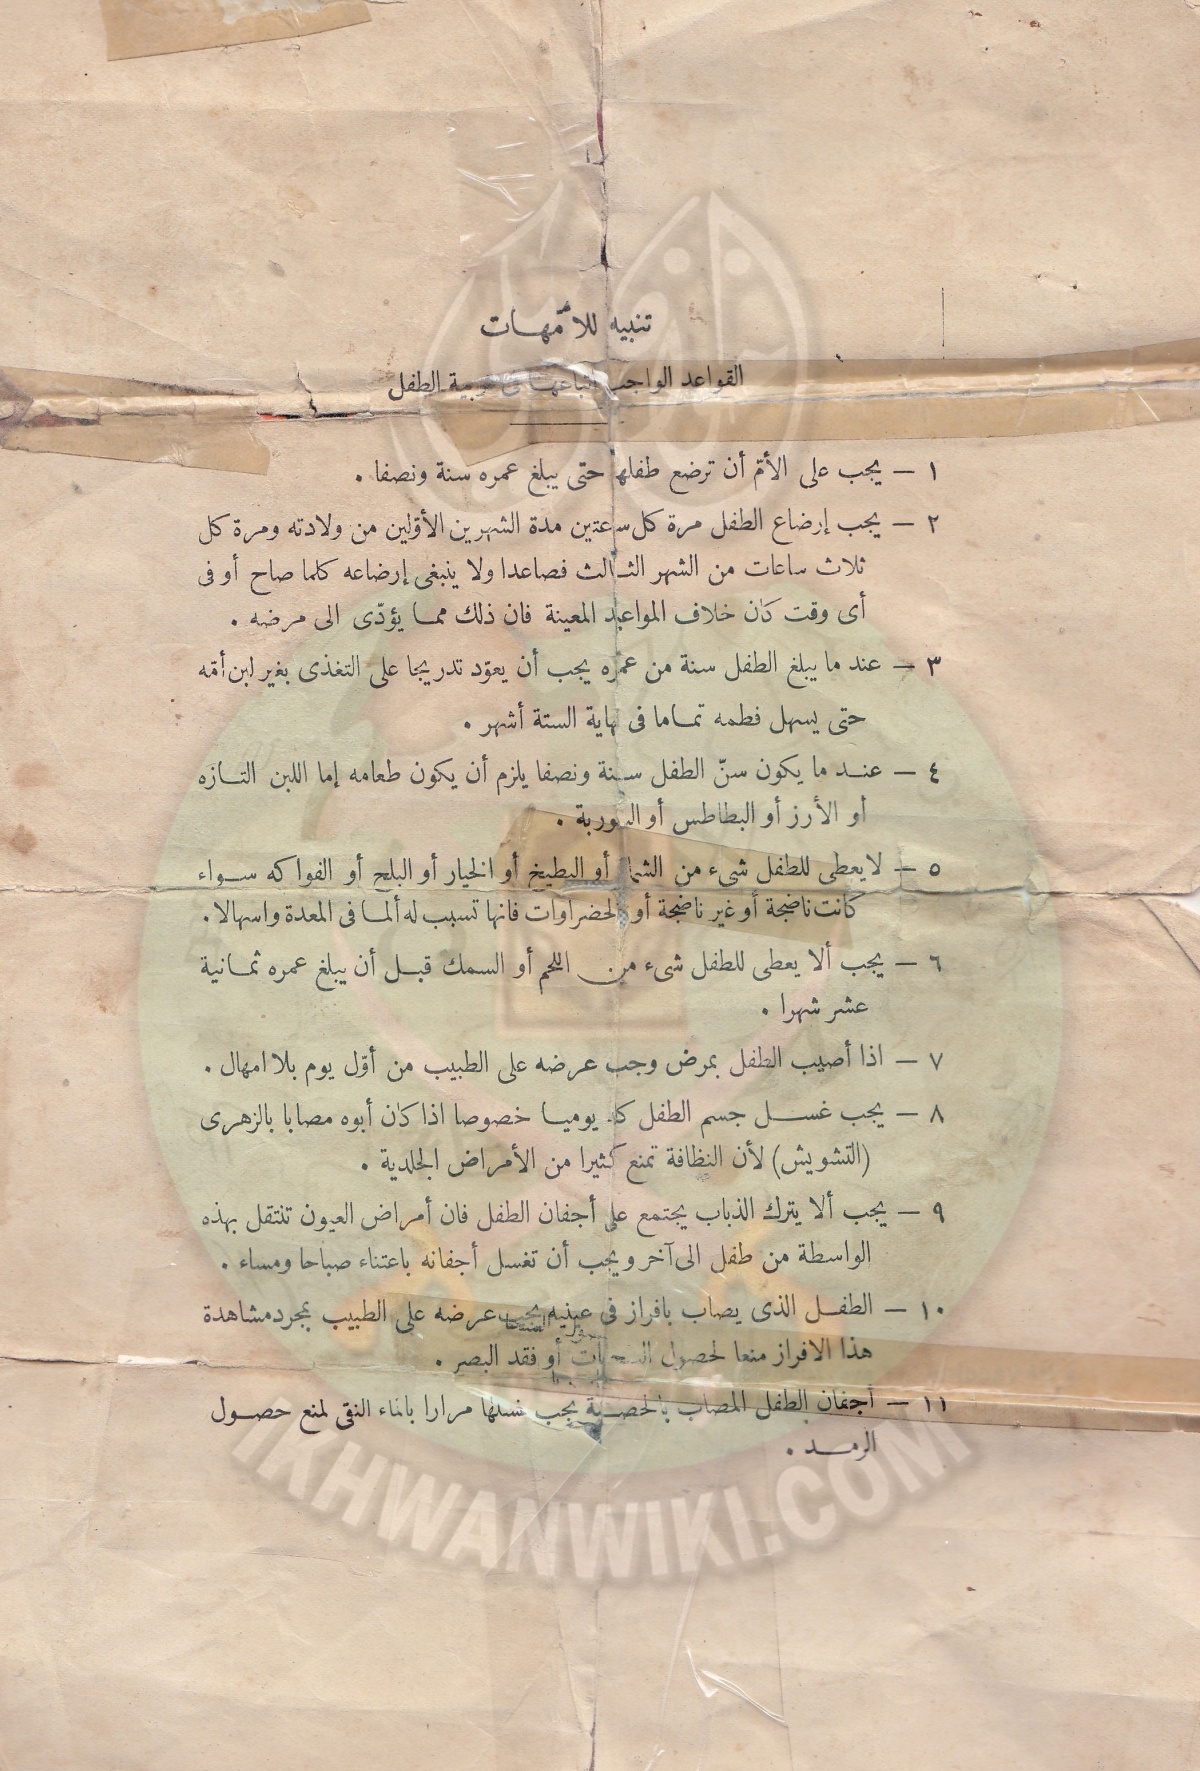 تنبيه للأمّهات
القواعد الواجب اتباعها فى تربية الطفل
١ — يجب على الأمّ أن ترضع طفلها حتى يبلغ عمره سنة ونصفا .
٢ — يجب إرضاع الطفل مرة كل ساعتين مدة الشهرين الأوّلين من ولادته ومرة كل
ثلاث ساعات من الشهر الثالث فصاعدا ولا ينبغى إرضاعه كلما صاح أو فى
أى وقت كان خلاف المواعيد المعينة فان ذلك مما يؤدّى الى مرضه .
٣ — عند ما يبلغ الطفل سنة من عمره يجب أن يعوّد تدريجا على التغذى بغير لبن أمّه
حتى يسهل فطمه تماما فى نهاية الستة أشهر .
٤ — عند ما يكون سنّ الطفل سنة ونصفا يلزم أن يكون طعامه إما اللبن التازه
أو الأرز أو البطاطس أو الشوربة .
٥ — لا يعطى للطفل شىء من الشمام أو البطيخ أو الخيار أو البلح أو الفواكه سواء
كانت ناضجة أو غير ناضجة أو الخضراوات فانها تسبب له ألما فى المعدة واسهالا .
٦ — يجب ألا يعطى للطفل شىء من اللحم أو السمك قبل أن يبلغ عمره ثمانية
عشر شهرا .
٧ — اذا أصيب الطفل بمرض وجب عرضه على الطبيب من أوّل يوم بلا امهال .
٨ — يجب غسل جسم الطفل كله يوميا خصوصا اذا كان أبوه مصابا بالزهرى
(التشويش) لأن النظافة تمنع كثيرا من الأمراض الجلدية .
٩ — يجب ألا يترك الذباب يجتمع على أجفان الطفل فان أمراض العيون تنتقل بهذه
الواسطة من طفل الى آخر ويجب أن تغسل أجفانه باعتناء صباحا ومساء .
١٠ — الطفل الذى يصاب بافراز فى عينيه يجب عرضه على الطبيب بمجرد مشاهدة
هذا الافراز منعا لحصول أو فقد البصر .
١١ — أجفان الطفل المصاب بالحصبة يجب غسلها مرارا بالماء النقى لمنع حصول
الرمد .
IKHWANWIKI.COM